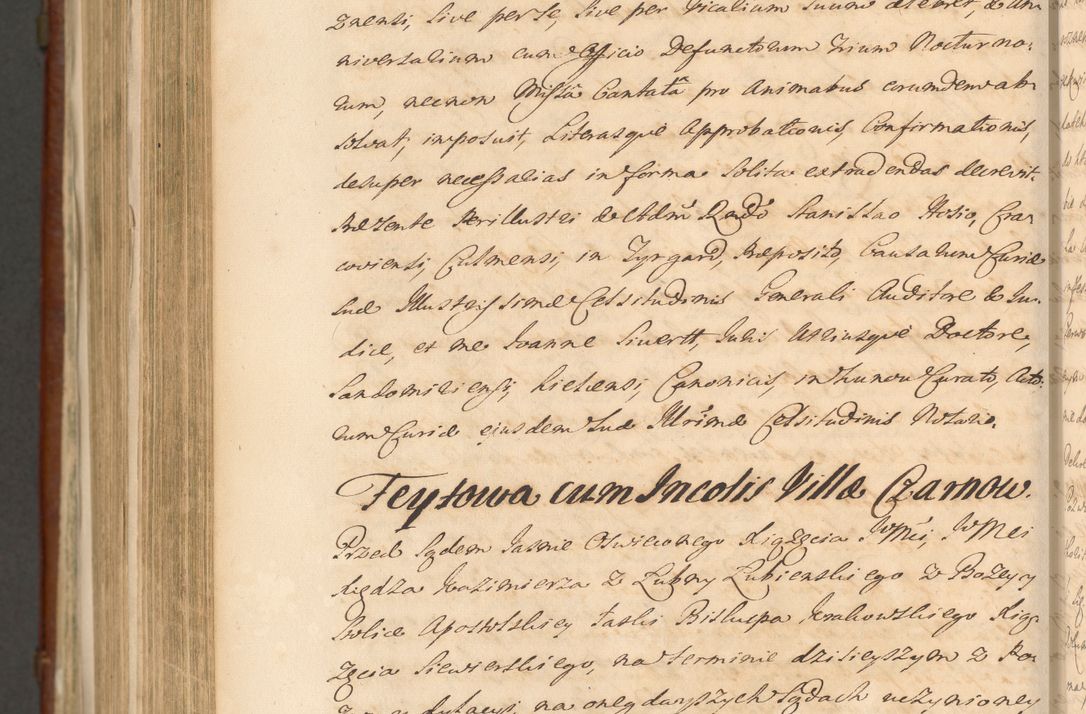 znensi, sive per se, sive per Vicarium suum
niversarium cum Officio Defunctorum Trium Nocturno-
rum, necnon Missa Cantata pro Animabus eorumdem ab-
solvat, imposuit, Literasque Approbationis, Confirmationis,
desuper necessarias in forma solita extradendas decrevit.
Præsente Perillustri & Adm Rndo Stanislao Hosio, Cra-
coviensi, Culmensi, in Præposito, Causarum Curiæ
suæ Illustrissimæ Celsitudinis Generali Auditore & Ju-
dice, et me Joanne Siwertt, Juris Utriusque Doctore,
Sandomiriensi, Kielcensi, Canonico, in Curato, Acto-
rum Curiæ ejusdem suæ Illrimæ Celsitudinis Notario.
Feytowa cum Incolis Villæ Czarnow.
Przed Sądem Jasnie Oswieconego Xiążęcia JWMci, JWMci
Xiędza Kazimierza z Łubny Łubienskiego z Bozey y
Stolice Apostolskiey łaski Biskupa Krakowskiego Xią-
żęcia Siewierskiego, na terminie dzisieyszym z
na onegdayszych Sądach uczynioney